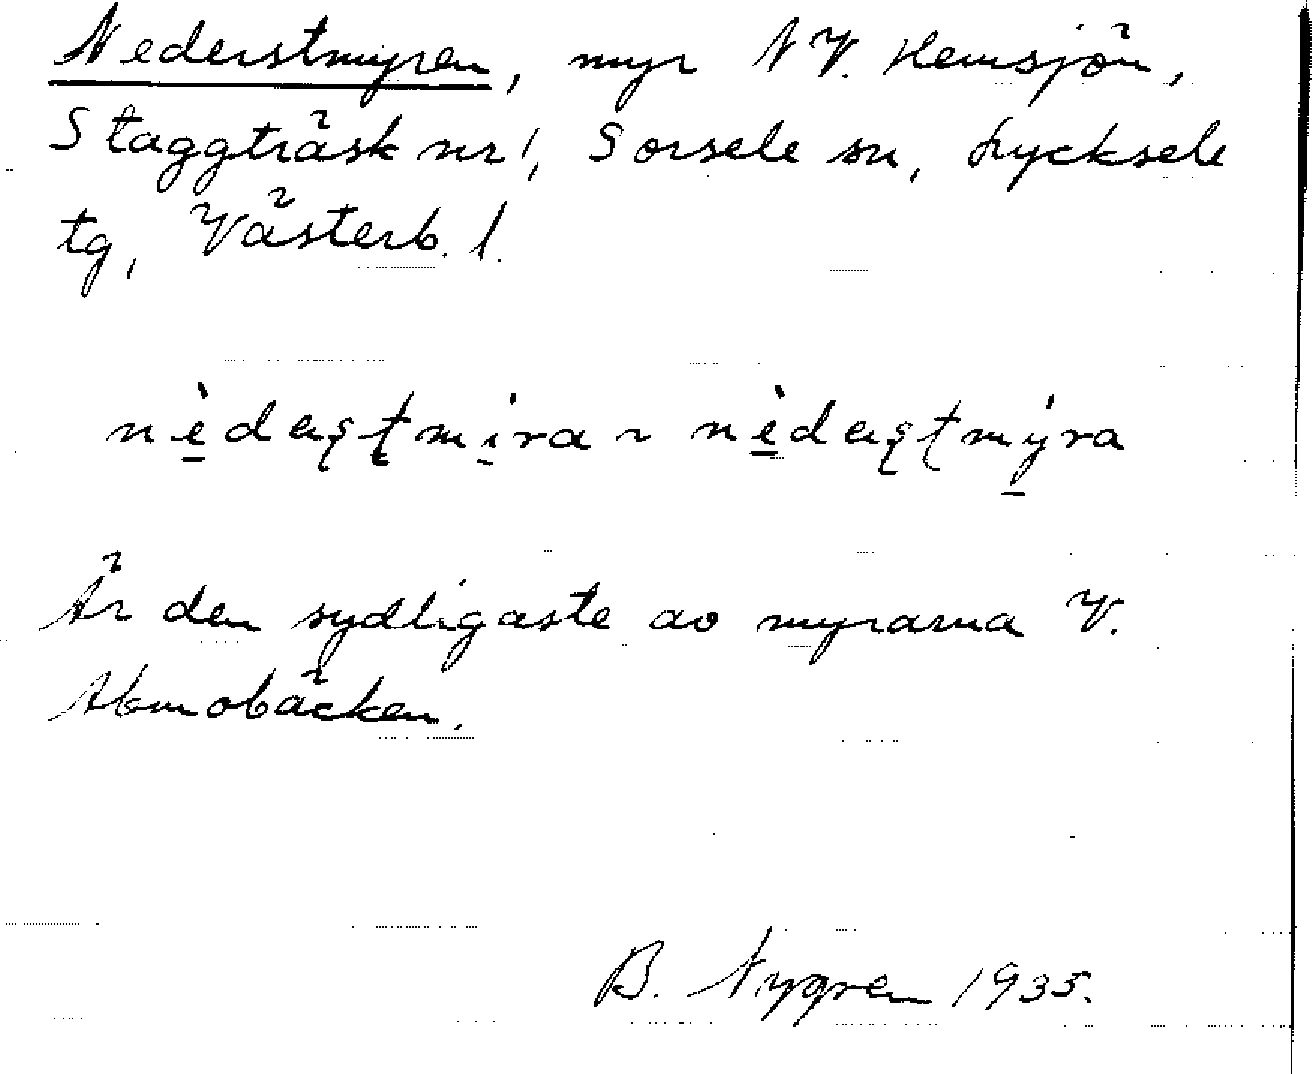 Nederstmyren, myr NV. Hemsjön,
Staggträsk nr 1, Sorsele sn, Lycksele
tg, Västerb. l.
nèdeʂʈmi̱ra ~ nèdeʂʈmy̱ra
Är den sydligaste av myrarna V.
Abmobäcken.
B. Nygren 1935.